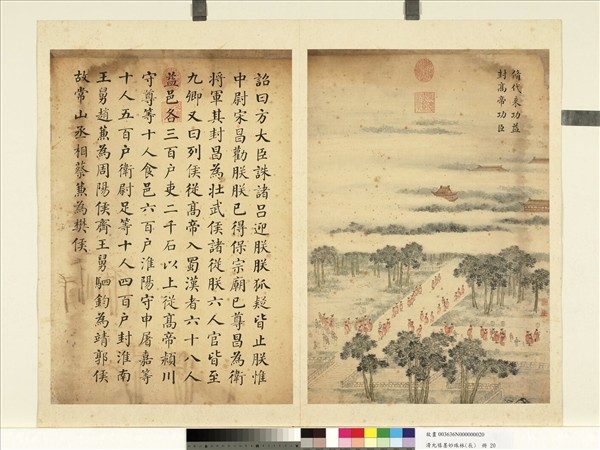 脩代來功益
封高帝功臣
詔曰方大臣誅諸呂迎朕朕狐疑皆止朕惟
中尉宋昌勸朕朕已得保宗廟已尊昌為衛
將軍其封昌為壯武侯諸從朕六人官皆至
九卿又曰列侯從高帝入蜀漢者六十八人
益邑各三百戶吏二千石以上從高帝潁川
守尊等十人食邑六百戶淮陽守申屠嘉等
十人五百戶衛尉足等十人四百戶封淮南
王舅趙兼為周陽侯齊王舅駟鈞為靖郭侯
故常山丞相蔡兼為樊侯
故畫 003636N000000020
墨妙珠林(辰) 冊 20